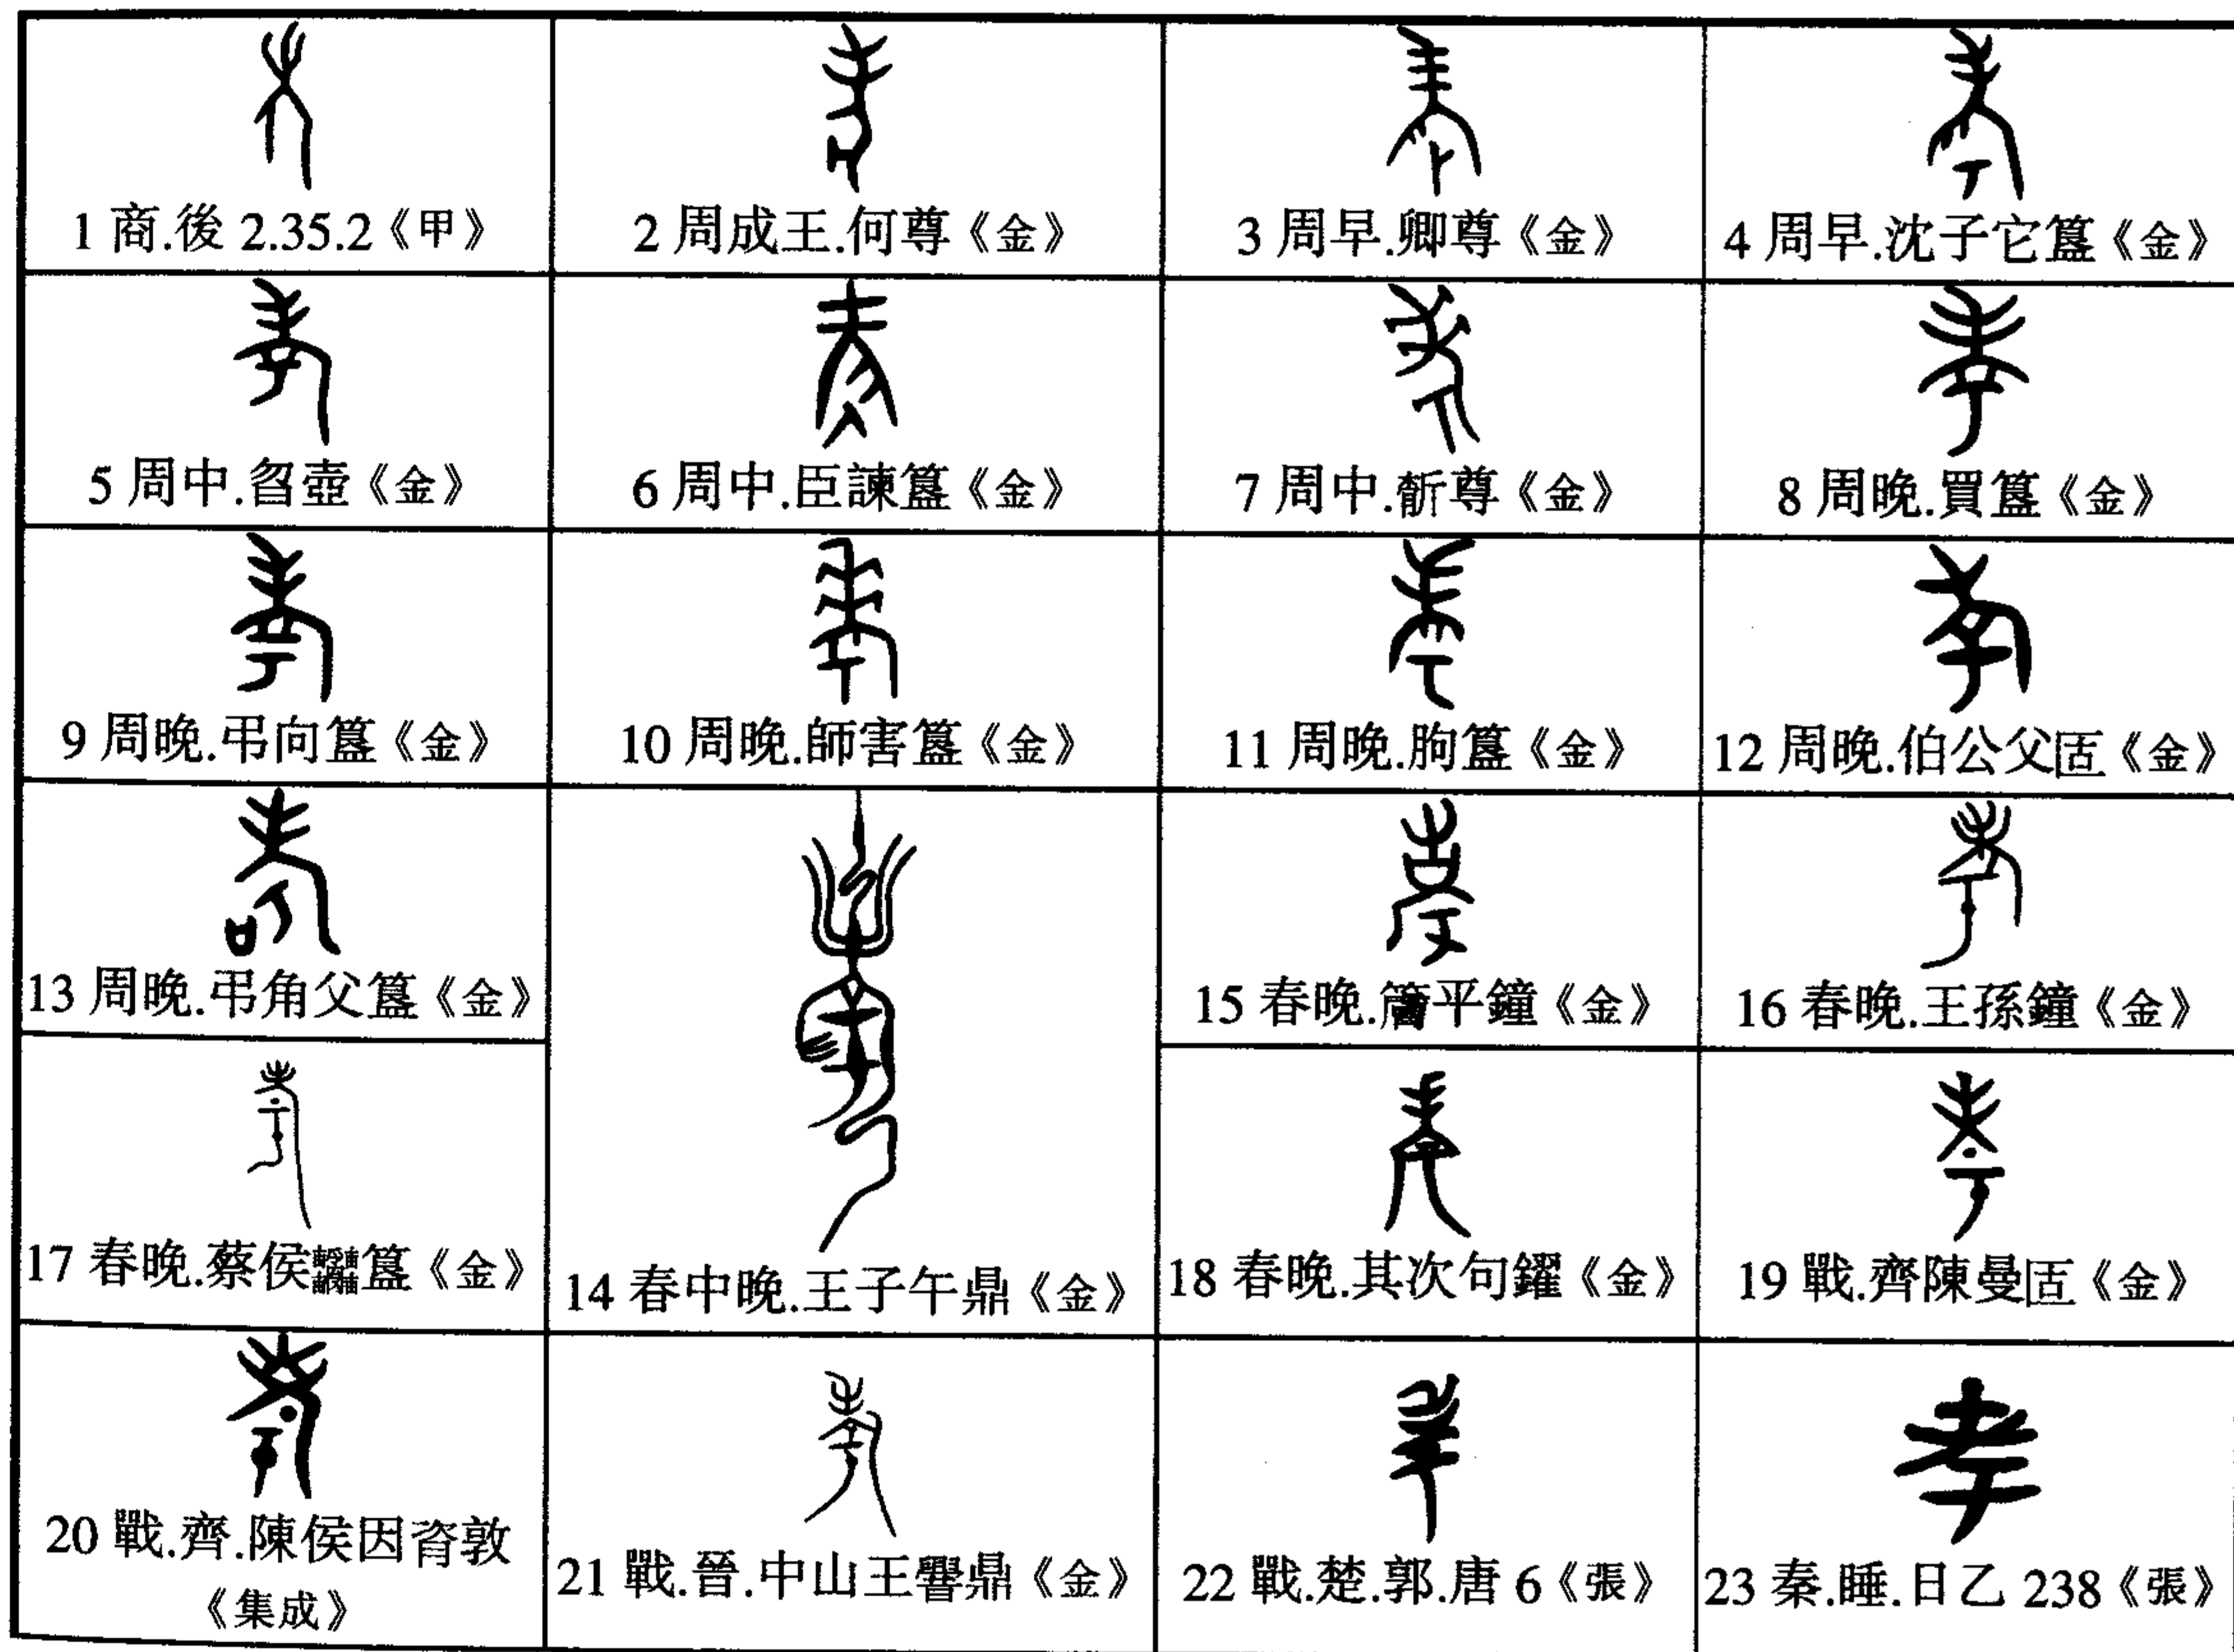 1 商.後 2.35.2《甲》
2 周成王.何尊《金》
3 周早.卿尊《金》
4 周早.沈子它簋《金》
5 周中.曶壺《金》
6 周中.臣諫簋《金》
7 周中.㪿尊《金》
8 周晚.買簋《金》
9 周晚.弔向簋《金》
10 周晚.師害簋《金》
11 周晚.朐簋《金》
12 周晚.伯公父𠤳《金》
13 周晚.弔角父簋《金》
14 春中晚.王子午鼎《金》
15 春晚.平鐘《金》
16 春晚.王孫鐘《金》
17 春晚.蔡侯簋《金》
18 春晚.其次句鑃《金》
19 戰.齊陳曼𠤳《金》
20 戰.齊.陳侯因𦣞敦
《集成》
21 戰.晉.中山王𰯼鼎《金》
22 戰.楚.郭.唐 6《張》
23 秦.睡.日乙 238《張》